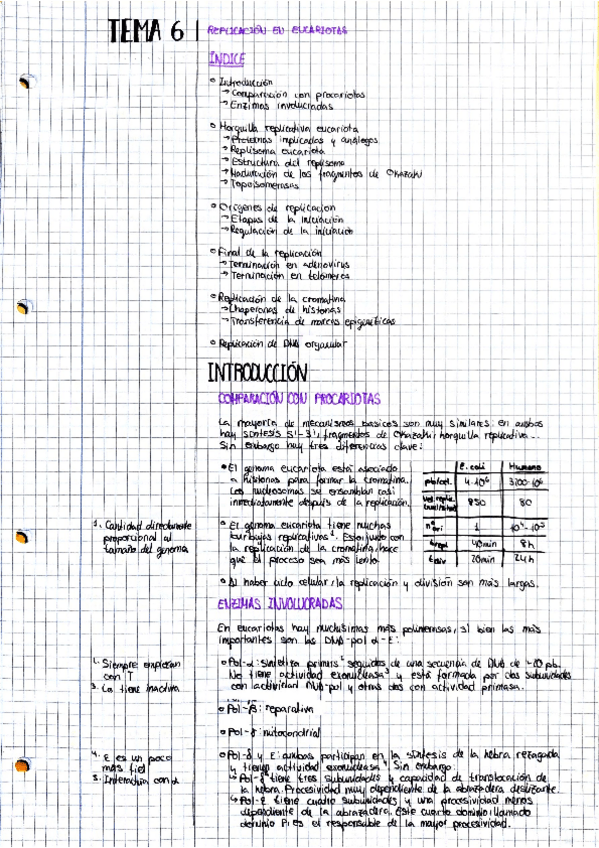 TEMA 6 | REPLICACIÓN EN EUCARIOTAS
ÍNDICE
° Introducción
→ Comparación con procariotas
→ Enzimas involucradas
° Horquilla replicativa eucariota
→ Proteínas implicadas y análogos
→ Replisoma eucariota
→ Estructura del replisoma
→ Maduración de los fragmentos de Okazaki
→ Topoisomerasas
° Orígenes de replicación
→ Etapas de la iniciación
→ Regulación de la iniciación
° Final de la replicación
→ Terminación en adenovirus
→ Terminación en telómeros
° Replicación de la cromatina
→ Chaperonas de histonas
→ Transferencia de marcas epigenéticas
° Replicación de DNA organular
INTRODUCCIÓN
COMPARACIÓN CON PROCARIOTAS
La mayoría de mecanismos básicos son muy similares: en ambos
hay síntesis 5'-3', fragmentos de Okazaki, horquilla replicativa...
Sin embargo hay tres diferencias clave:
• El genoma eucariota está asociado
a histonas para formar la cromatina.
Los nucleosomas se ensamblan casi
inmediatamente después de la replicación.
E. coli Humano
pb/cel. 4·10⁶ 3200·10⁶
vel. replic. 850 80
nº ori 1
t repl 40min 8h
t div 20min 24h
1. Cantidad directamente
proporcional al
tamaño del genoma
• El genoma eucariota tiene muchas
burbujas replicativas¹. Esto junto con
la replicación de la cromatina hace
que el proceso sea más lento
• Al haber ciclo celular, la replicación y división son más largas.
ENZIMAS INVOLUCRADAS
En eucariotas hay muchísimas más polimerasas, si bien las más
importantes son las DNA-pol α-ε:
2. Siempre empiezan
con T
3. La tiene inactiva
• Pol-α: sintetiza primers² seguidos de una secuencia de DNA de ~20 pb.
No tiene actividad exonucleasa³ y está formada por dos subunidades
con actividad DNA-pol y otras dos con actividad primasa.
• Pol-β: reparativa
• Pol-γ: mitocondrial
4. ε es un poco
más fiel
5. Interactúa con
• Pol-δ y ε: ambas participan en la síntesis de la hebra rezagada
y tienen actividad exonucleasa⁴. Sin embargo:
↳ Pol-δ tiene tres subunidades y capacidad de translocación de
la hebra. Procesividad muy dependiente de la abrazadera deslizante.
↳ Pol-ε tiene cuatro subunidades y una procesividad menos
dependiente de la abrazadera. Este cuarto dominio llamado
dominio P, es el responsable de la mayor procesividad.